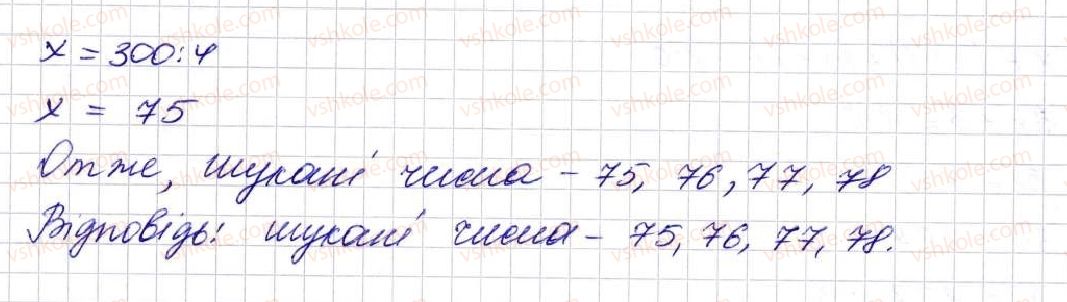 x = 300:4
x = 75
Отже, шукані числа – 75, 76, 77, 78
Відповідь: шукані числа – 75, 76, 77, 78.